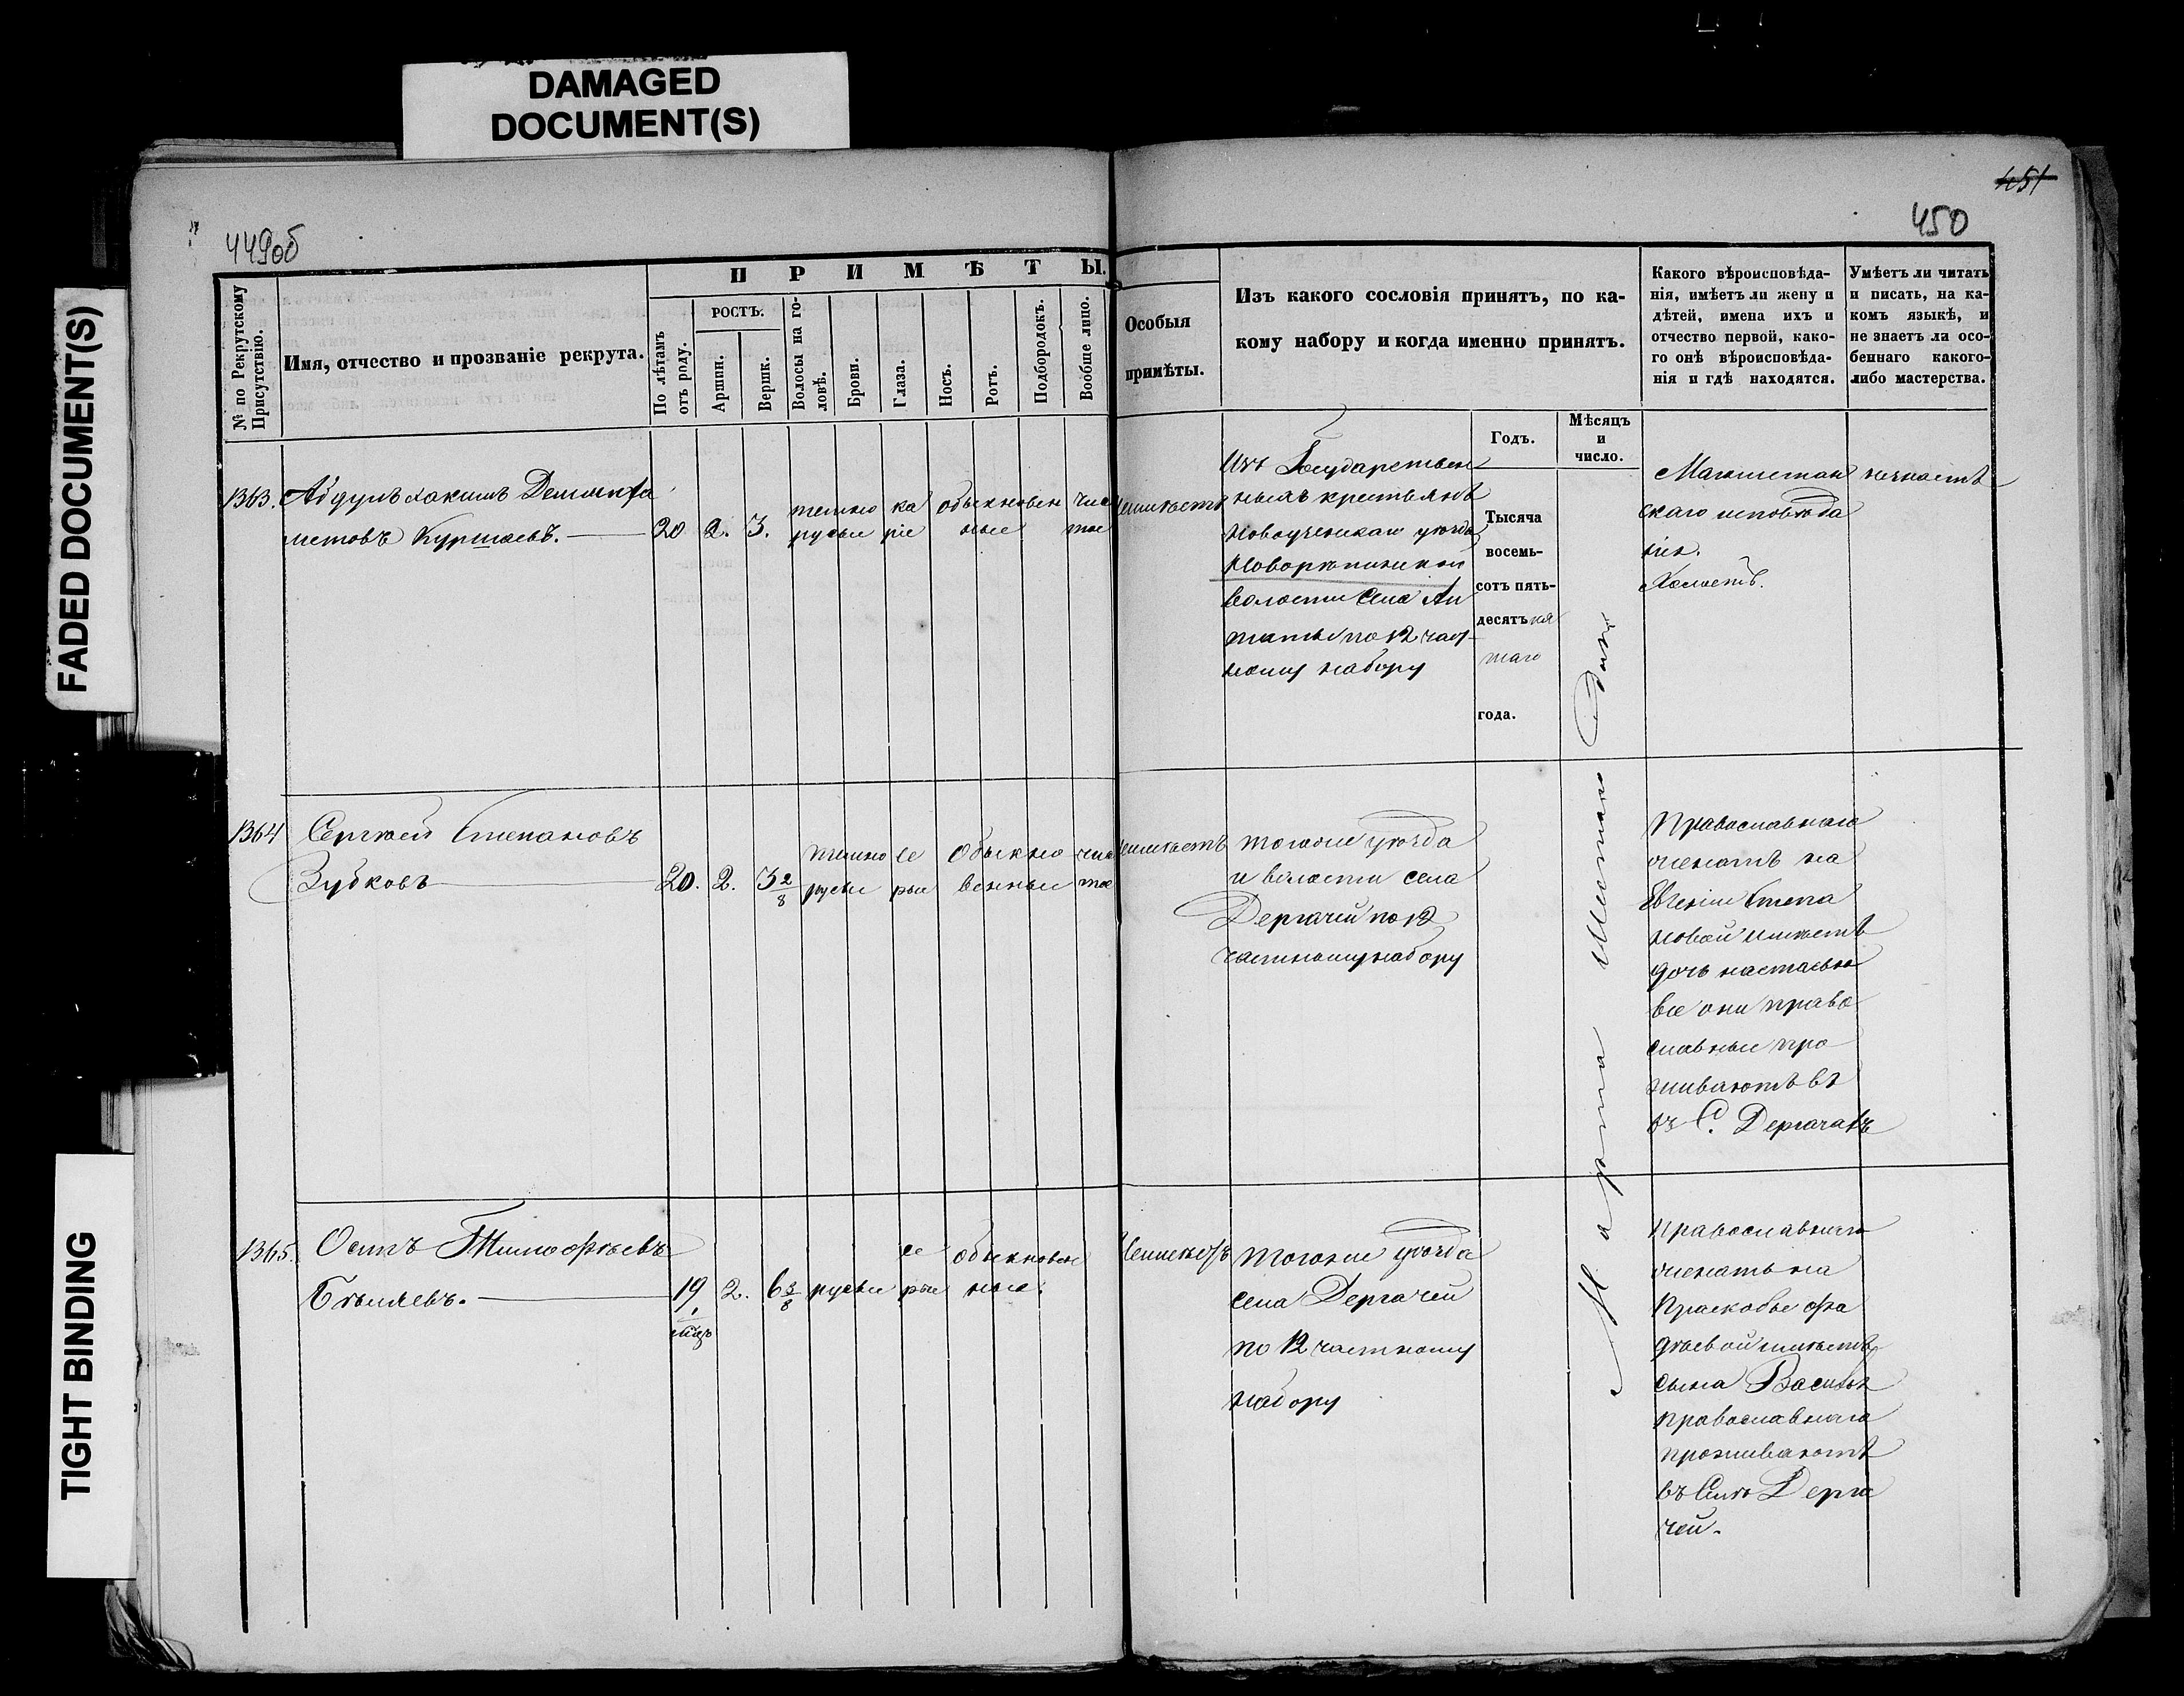 DAMAGED
DOCUMENT(S)
FADED DOCUMENT(S)
TIGHT BINDING
449об
451
450
№ по Рекрутскому Присутствію.
Имя, отчество и прозваніе рекрута.
ПРИМѢТЫ.
По лѣтамъ отъ роду.
РОСТЪ.
Аршин.
Вершк.
Волосы на головѣ.
Брови.
Глаза.
Носъ.
Ротъ.
Подбородокъ.
Вообще лицо.
Особыя
примѣты.
Изъ какого сословія принятъ, по ка-
кому набору и когда именно принятъ.
Какого вѣроисповѣда-
нія, имѣетъ ли жену и
дѣтей, имена ихъ и
отчество первой, како-
го онѣ вѣроисповѣда-
нія и гдѣ находятся.
Умѣетъ ли читать
и писать, на ка-
комъ языкѣ, и
не знаетъ ли осо-
беннаго какого-
либо мастерства.
Годъ.
Мѣсяцъ
и
число.
1363.
Абдулъ хакимъ
метовъ
20
2.
3.
темно
русые
ка
ріе
обыкновен
ные
чис
тое
неимѣетъ
Изъ Государствен
ныхъ крестьянъ
Новоузенскаго уѣзда
волости Села Ал
таты по 12 част
ному набору
Тысяча
восемь-
сотъ пять-
десятъ пя
таго
года.
Марта
Магометан
скаго исповѣда
нія.
Холостъ.
незнаетъ
1364
Сергѣй Степановъ
Зубковъ
20.
2.
3 2/8
темно
русые
се
рые
Обыкно
венные
чис
тое
неимѣетъ
тогоже уѣзда
и волости села
Дергачей по 12
частному набору
Православнаго
женатъ на
Евгеніи Степа
новой имѣетъ
дочь настасью
все они право
славные про
живаютъ въ
въ С. Дергачахъ
1365.
Осипъ Тимофѣевъ
Бѣляевъ.
19
2.
6 3/8
русые
се
рые
обыкновен
ные.
Неимеетъ
тогоже уѣзда
села Дергачей
по 12 частному
набору
Православнаго
женатъ на
Прасковье фа
дѣевой имѣетъ
сына Василья
православнаго
проживаютъ
въ Селѣ Дерга
чей.